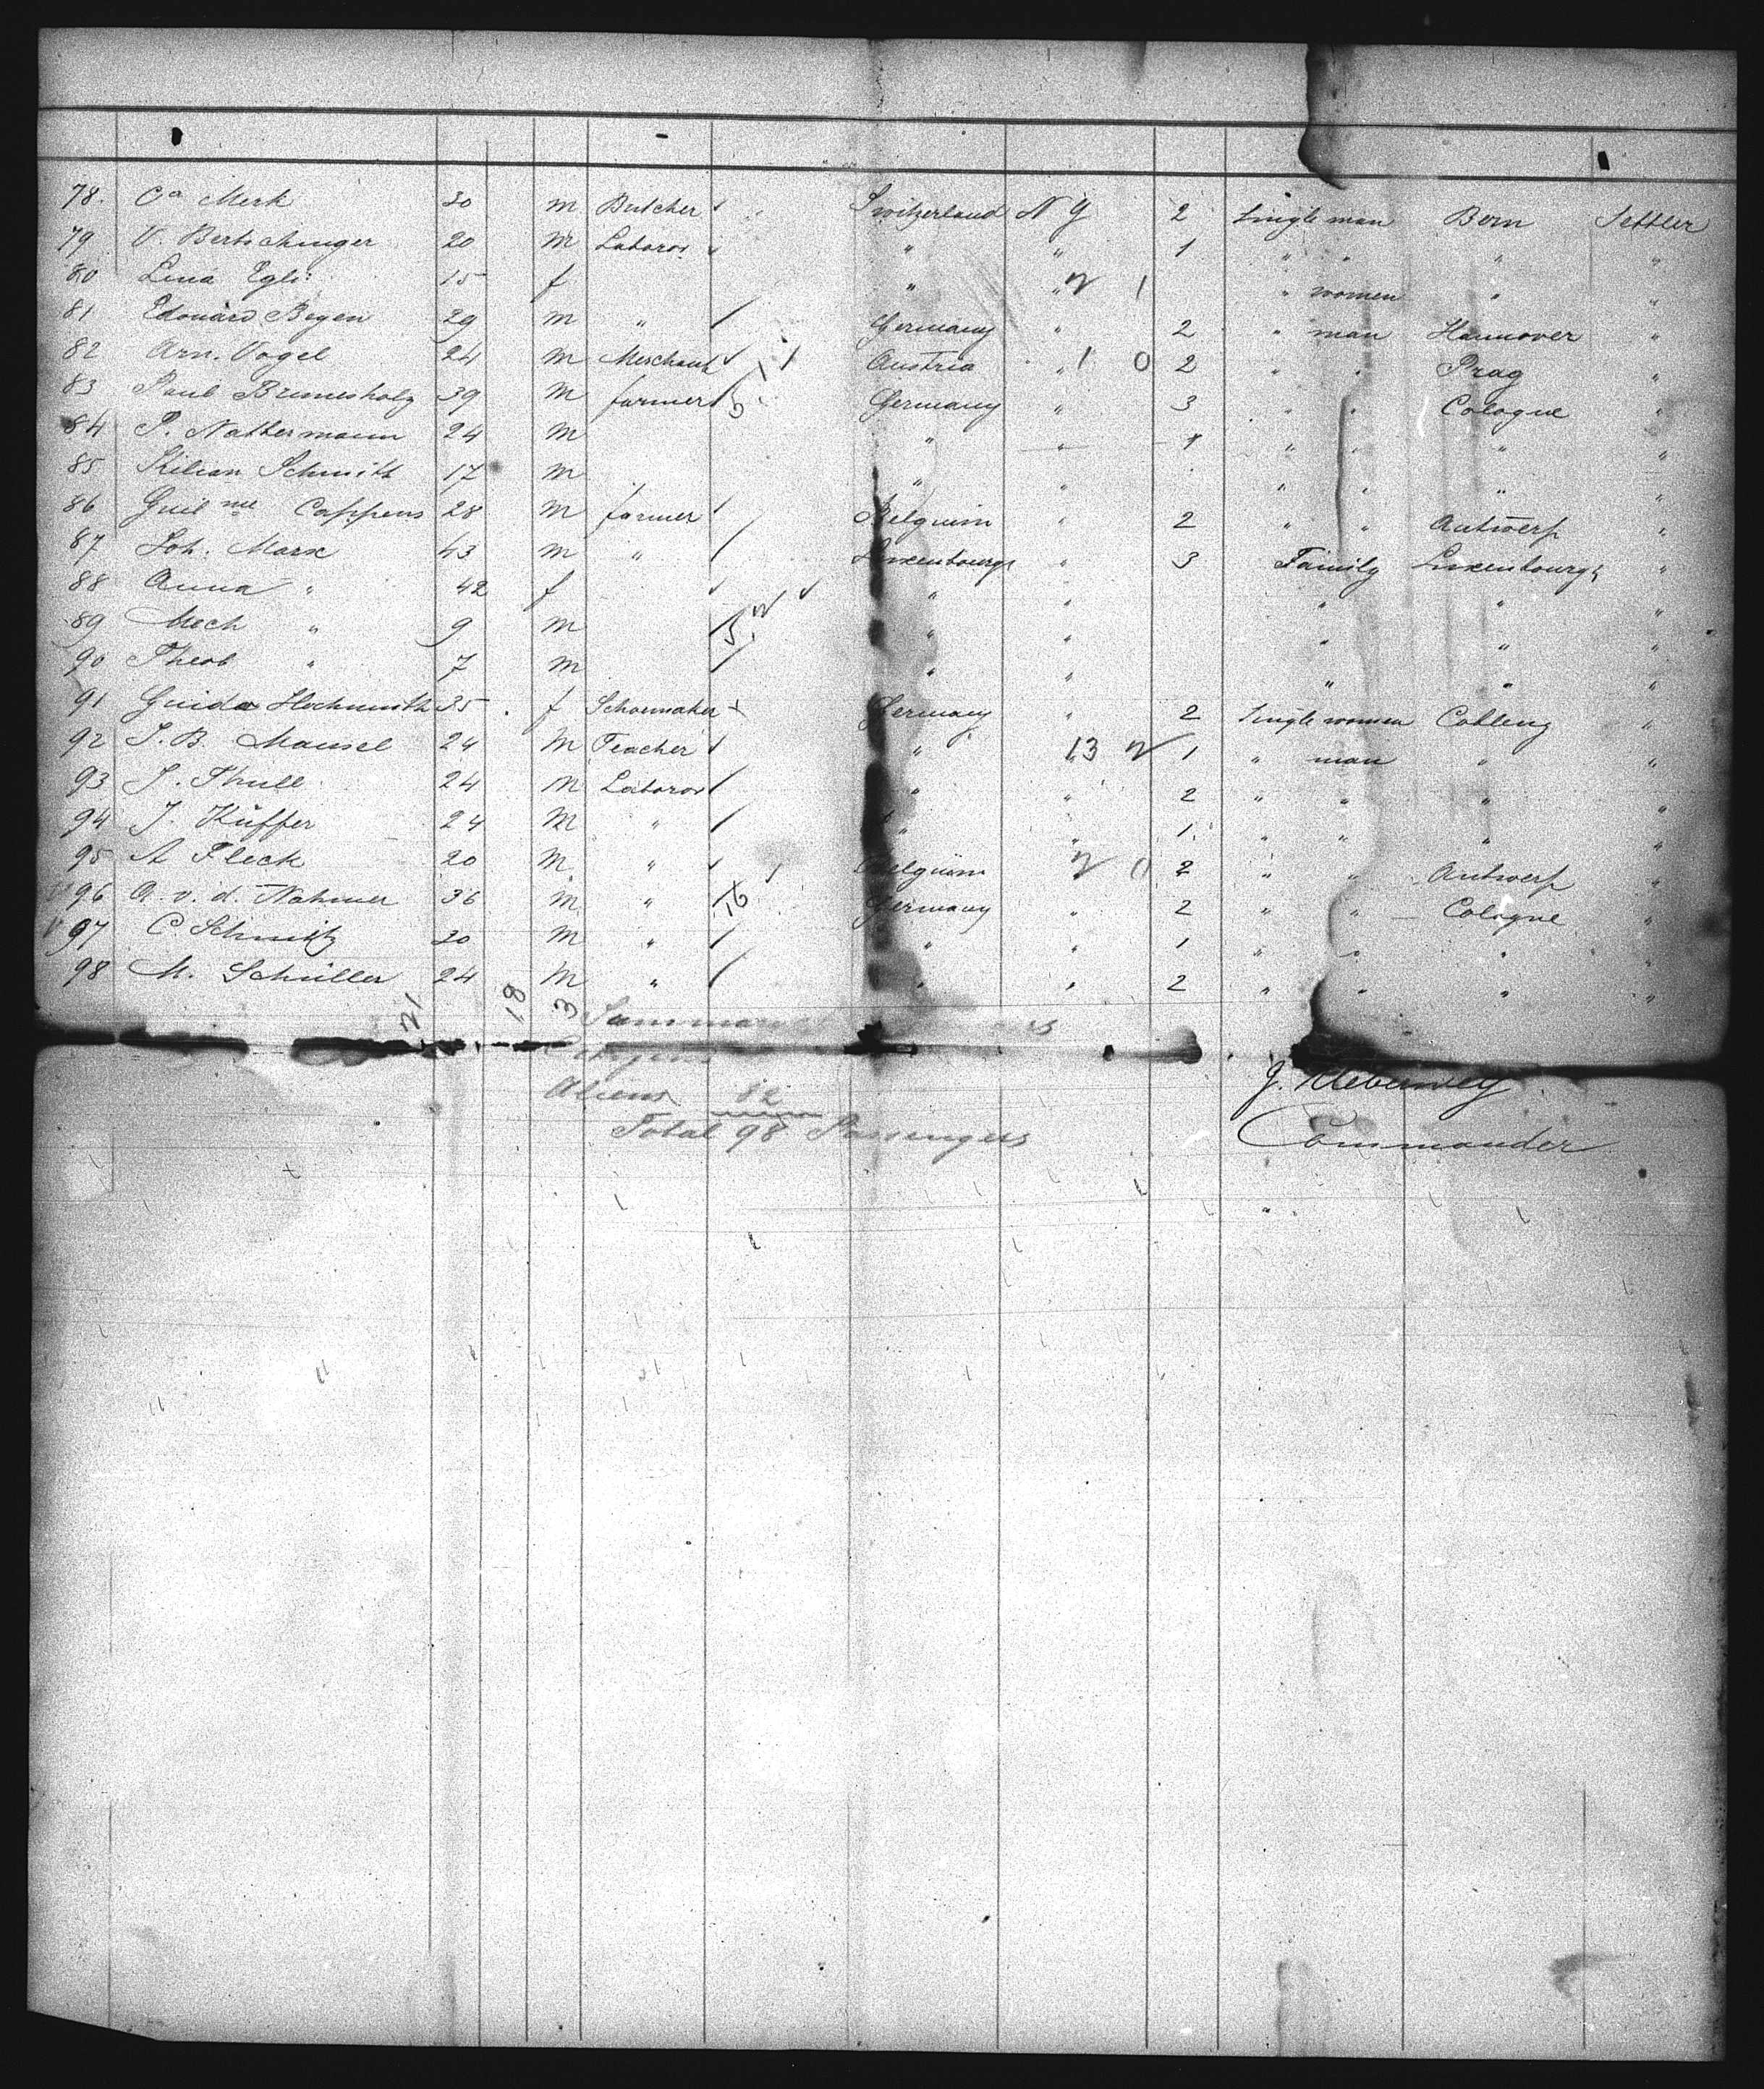 78. Ca Merk 30 m Butcher Switzerland N Y 2 Single man Bern Settler
79 V. Bertschinger 20 m Laboror " " 1 " " " "
80 Lena Egli 15 f " " 2 1 " women " "
81 Edouard Begen 29 m " Germany " 2 " man Hannover "
82 Arn. Vogel 24 m Merchant 1 Austria " 1 0 2 " " Prag "
83 Paul 39 m farmer 5. Germany " 3 " " Cologne "
84 P. Nattermann 24 m " " 1 " " " "
85 Kilian Schmitt 17 m " " " " " "
86 Guilme Cappens 28 m farmer Belguim " 2 " " Antwerp "
87 Joh. Marx 43 m " Luxenbourgh " 3 Family Luxenbourgh "
88 Anna " 42 f " " " " "
89 Mech " 9 m 5. 2 " " " " "
90 Theob " 7 m " " " " "
91 Guida Hochmuth 35 f Schoemaker Germany " 2 Single women Coblenz "
92 J. B. Mansel 24 m Teacher " " 13 2 1 " man " "
93 J. Thull 24 m Laboror " " 2 " " " "
94 J. Küffer 24 m " " " 1 " " " "
95 A Fleck 20 m " Belguim 2 0 2 " " Antwerp "
96 A. v. d. Nahmer 36 m " 16 Germany " 2 " " Cologne "
97 C Schmitz 20 m " " " 1 " " " "
98 M. Schüller 24 m " " " 2 " " " "
21 18 3
J. Ueberweg
Aliens 82
Total 98 Passengers
Commander